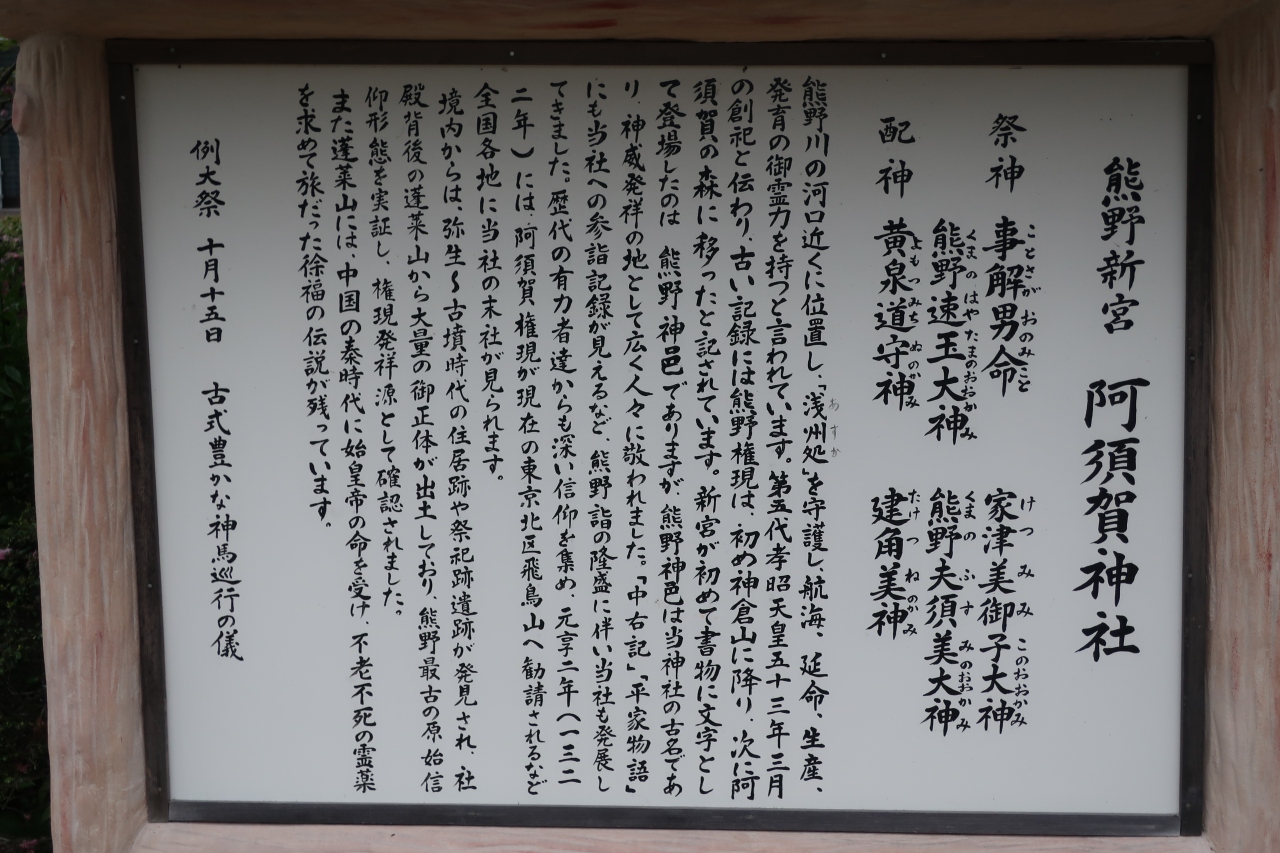 熊野新宮 阿須賀神社
祭神 事解男命 家津美御子大神
ことさかおのみこと けつみみこのおおかみ
熊野速玉大神 熊野夫須美大神
くまのはやたまのおおかみ くまのふすみのおおかみ
配神 黄泉道守神 建角美神
よもつみちぬのかみ たけつねのかみ
熊野川の河口近くに位置し、「浅州処」を守護し、航海、延命、生産、
あすか
発育の御霊力を持つと言われています。第五代孝昭天皇五十三年三月
の創祀と伝わり、古い記録には熊野権現は、初め神倉山に降り、次に阿
須賀の森に移ったと記されています。新宮が初めて書物に文字とし
て登場したのは 熊野神邑でありますが、熊野神邑は当神社の古名であ
り、神威発祥の地として広く人々に敬われました。「中右記」「平家物語」
にも当社への参詣記録が見えるなど、熊野詣の隆盛に伴い当社も発展し
てきました。歴代の有力者達からも深い信仰を集め、元享二年(一三二
二年)には、阿須賀権現が現在の東京北区飛鳥山へ勧請されるなど
全国各地に当社の末社が見られます。
境内からは、弥生〜古墳時代の住居跡や祭祀跡遺跡が発見され、社
殿背後の蓬莱山から大量の御正体が出土しており、熊野最古の原始信
仰形態を実証し、権現発祥源として確認されました。。
また蓬莱山には、中国の秦時代に始皇帝の命を受け、不老不死の霊薬
を求めて旅だった徐福の伝説が残っています。
例大祭 十月十五日 古式豊かな神馬巡行の儀